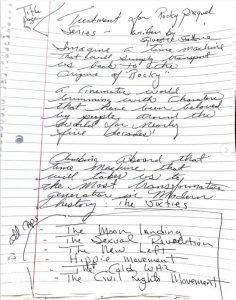 Title
Page
Treatment for Rocky Prequel
Series - written by
Sylvester Stallone
Imagine a time machine
that would simply transport
us back to the
Origins of Rocky"
a Cinematic world
brimming with characters
that have been beloved
by people around the
World for nearly
five decades!
Climbing Aboard that
time Machine that
will takes us to
the Most Transformative
generation in Modern
history - The Sixties
- The Moon Landing
- The Sexual Revolution
- The New Left
- Hippie Movement
- The Cold WAR
- The Civil Rights Movement